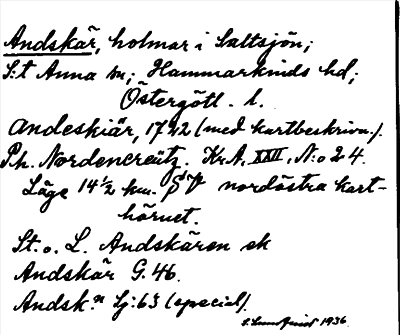 Andskär, holmar i Saltsjön;
S:t Anna sn; Hammarkinds hd;
Östergötl. l.
Andeskiär, 1722 (med kartbeskrivn.).
Ph. Nordencreütz. Kr.A. XXII, N:o 24.
Läge 14 1/2 km. nordöstra kart-
hörnet.
St. o. L. Andskären ek
Andskär G. 46.
Andsk:n Sj: 63 (special).
1936